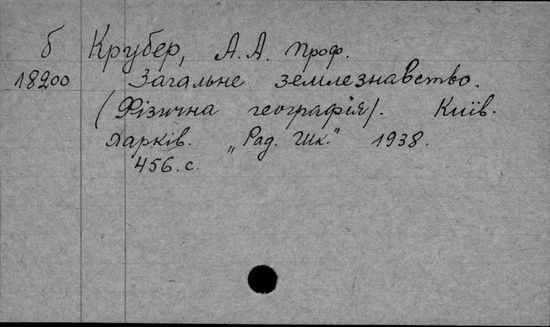 б Крубер, А. А. проф.
18200 Загальне землезнавство.
(Фізична географія). Київ.
Харків. „Рад. Шк." 1938.
456. с.